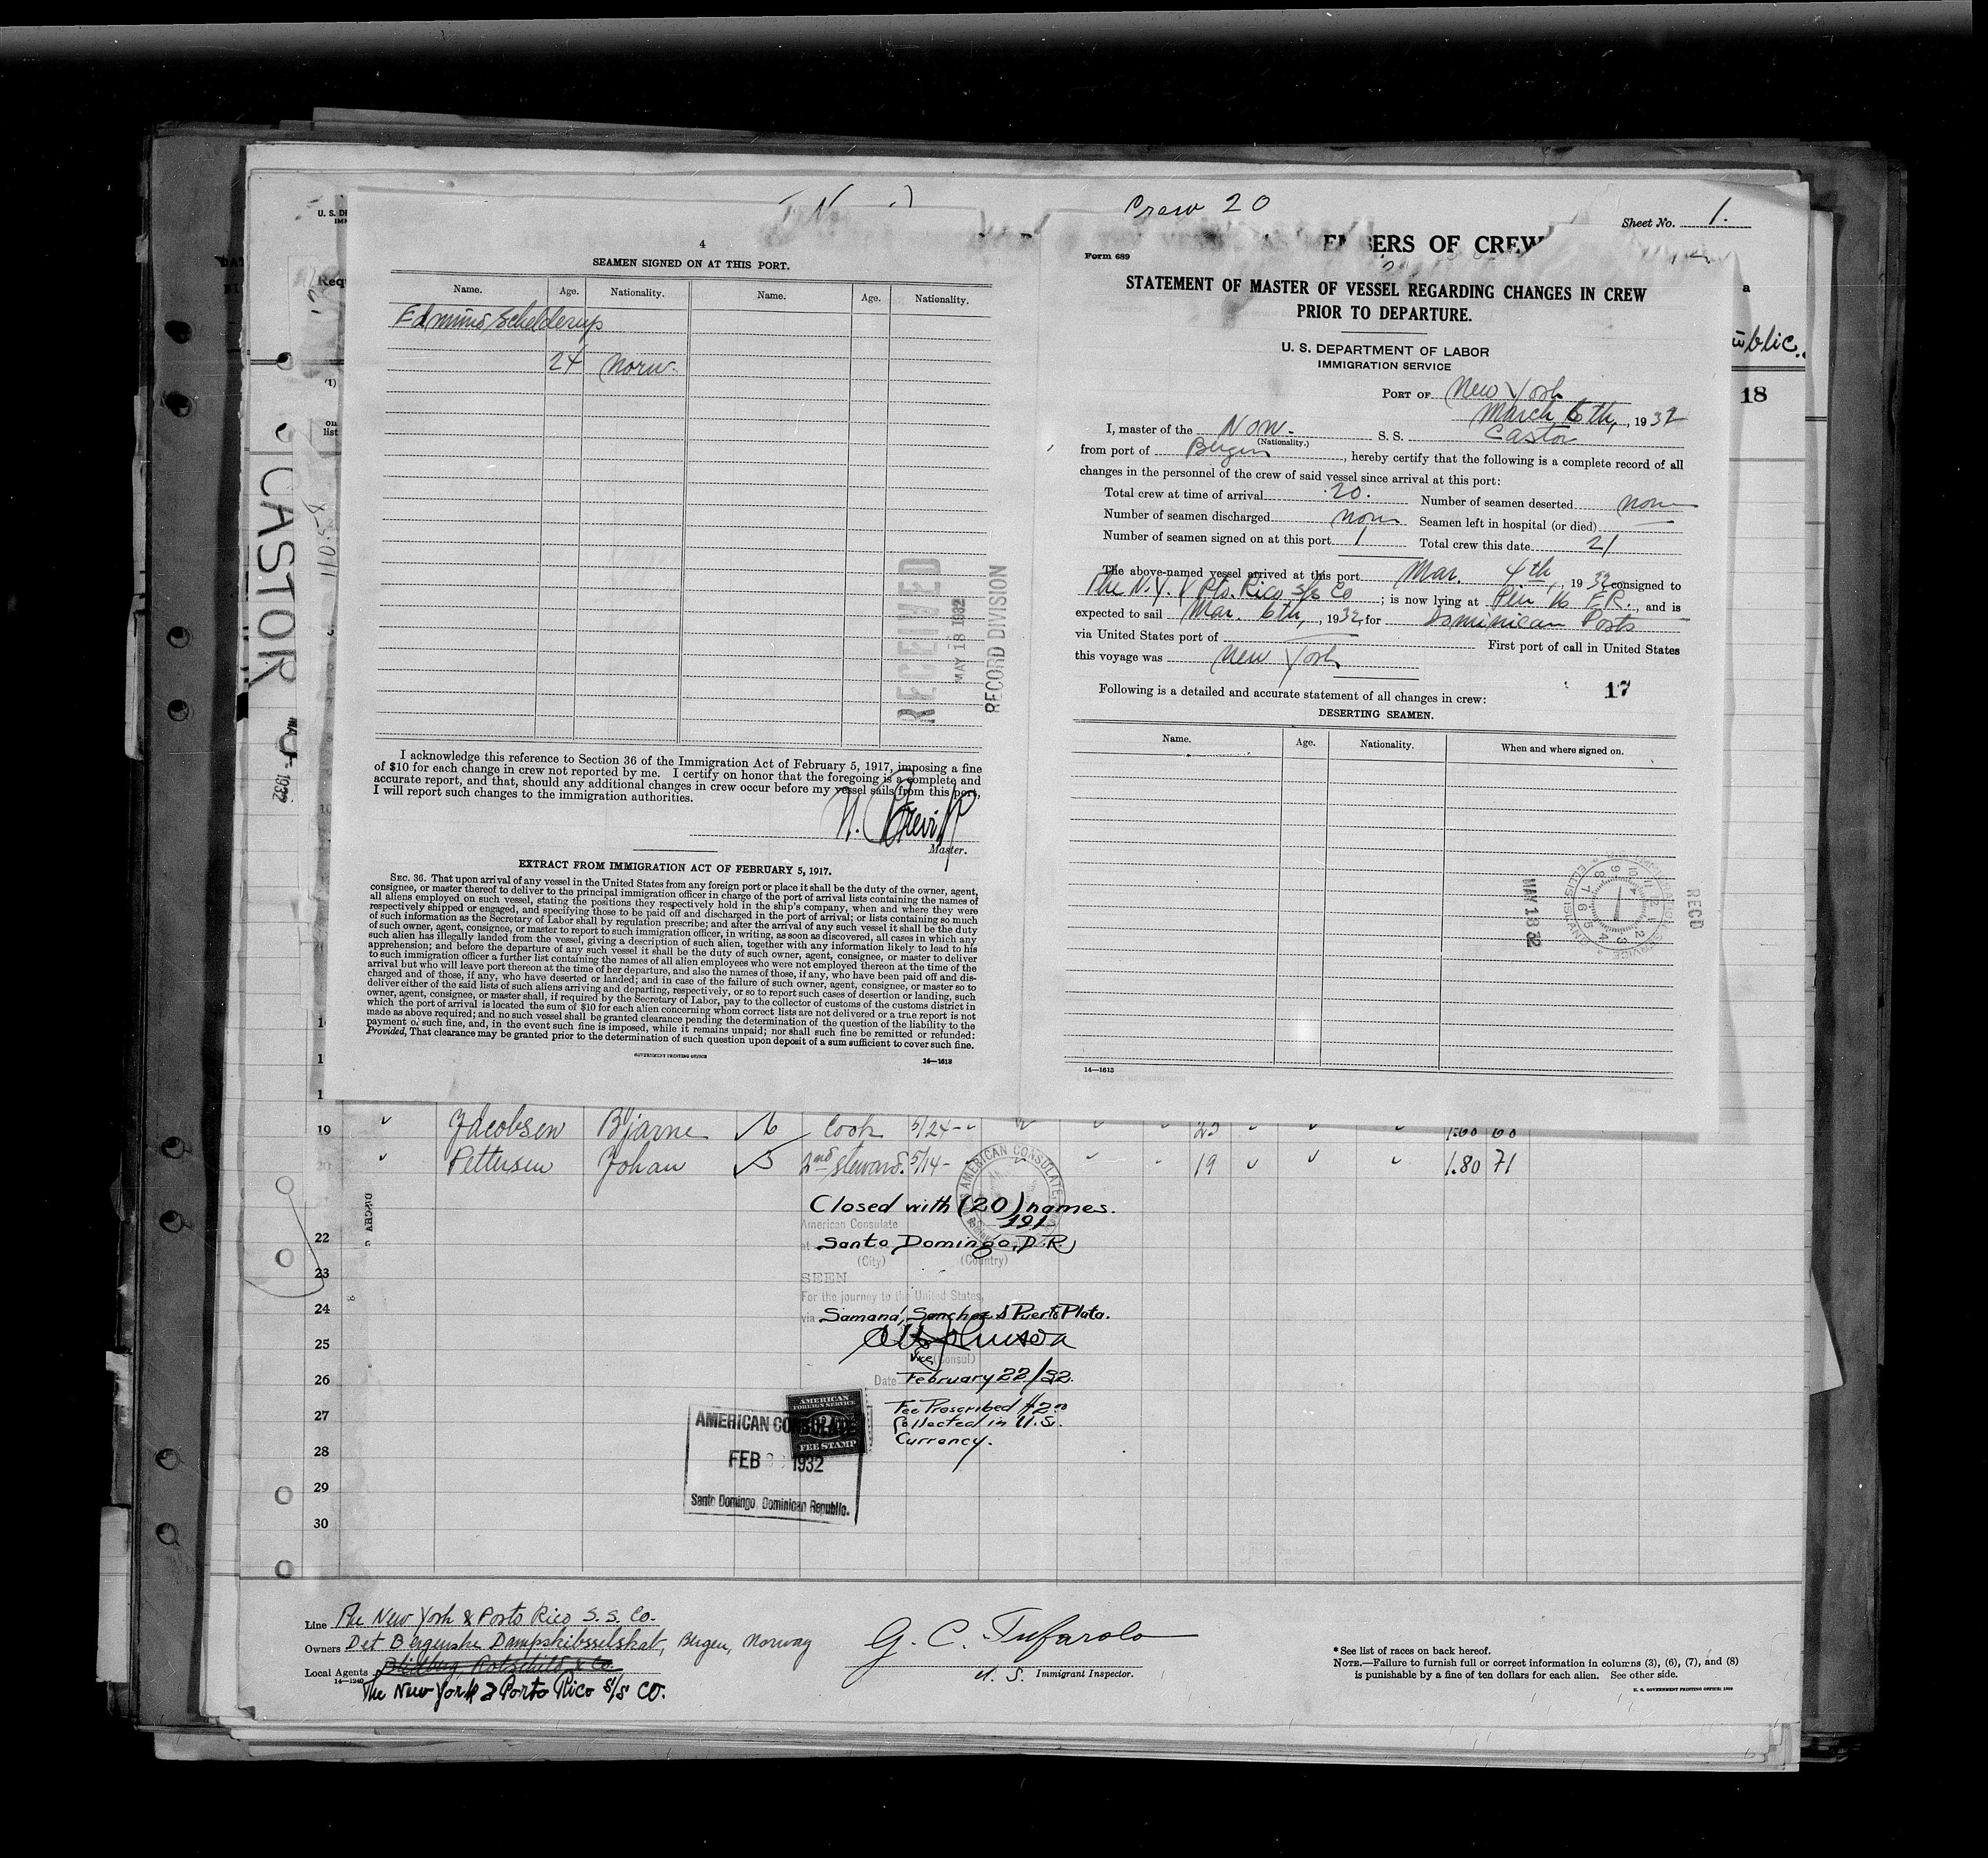 Crew 20
Sheet No. 1.
4
SEAMEN SIGNED ON AT THIS PORT.
Name. Age. Nationality. Name. Age. Nationality.
Edmund Schelderup
24 Norw.
RECEIVED
MAY 18 1932
RECORD DIVISION
I acknowledge this reference to Section 36 of the Immigration Act of February 5, 1917, imposing a fine
of $10 for each change in crew not reported by me. I certify on honor that the foregoing is a complete and
accurate report, and that, should any additional changes in crew occur before my vessel sails from this port,
I will report such changes to the immigration authorities.
Master.
EXTRACT FROM IMMIGRATION ACT OF FEBRUARY 5, 1917.
SEC. 36. That upon arrival of any vessel in the United States from any foreign port or place it shall be the duty of the owner, agent,
consignee, or master thereof to deliver to the principal immigration officer in charge of the port of arrival lists containing the names of
all aliens employed on such vessel, stating the positions they respectively hold in the ship's company, when and where they were
respectively shipped or engaged, and specifying those to be paid off and discharged in the port of arrival; or lists containing so much
of such information as the Secretary of Labor shall by regulation prescribe; and after the arrival of any such vessel it shall be the duty
of such owner, agent, consignee, or master to report to such immigration officer, in writing, as soon as discovered, all cases in which any
such alien has illegally landed from the vessel, giving a description of such alien, together with any information likely to lead to his
apprehension; and before the departure of any such vessel it shall be the duty of such owner, agent, consignee, or master to deliver
to such immigration officer a further list containing the names of all alien employees who were not employed thereon at the time of the
arrival but who will leave port thereon at the time of her departure, and also the names of those, if any, who have been paid off and dis-
charged and of those, if any, who have deserted or landed; and in case of the failure of such owner, agent, consignee, or master so to
deliver either of the said lists of such aliens arriving and departing, respectively, or so to report such cases of desertion or landing, such
owner, agent, consignee, or master shall, if required by the Secretary of Labor, pay to the collector of customs of the customs district in
which the port of arrival is located the sum of $10 for each alien concerning whom correct lists are not delivered or a true report is not
made as above required; and no such vessel shall be granted clearance pending the determination of the question of the liability to the
payment of such fine, and, in the event such fine is imposed, while it remains unpaid; nor shall such fine be remitted or refunded:
Provided, That clearance may be granted prior to the determination of such question upon deposit of a sum sufficient to cover such fine.
GOVERNMENT PRINTING OFFICE
14—1613
OF CREW
Form 689
STATEMENT OF MASTER OF VESSEL REGARDING CHANGES IN CREW
PRIOR TO DEPARTURE.
U. S. DEPARTMENT OF LABOR
IMMIGRATION SERVICE
PORT OF New York
March 6th, 1932
I, master of the Now. S. S. Castor
(Nationality.)
from port of Bergen, hereby certify that the following is a complete record of all
changes in the personnel of the crew of said vessel since arrival at this port:
Total crew at time of arrival 20. Number of seamen deserted none
Number of seamen discharged none Seamen left in hospital (or died)
Number of seamen signed on at this port 1 Total crew this date 21
The above-named vessel arrived at this port Mar. 4th, 1932 consigned to
The N.Y. & Pto. Rico S/S Co; is now lying at Pier 16 E.R., and is
expected to sail Mar. 6th, 1932, for Dominican Ports
via United States port of First port of call in United States
this voyage was New York
Following is a detailed and accurate statement of all changes in crew: 17
DESERTING SEAMEN.
Name. Age. Nationality. When and where signed on.
MAY 18 32
ELLIS ISLAND
RECD
14—1613
CASTOR
1932
18
19 Jacobsen Bjarne Cook 5/24 23 1.60 60
20 Pettersen Johan 2nd steward. 5/14 19 1.80 71
22
23
24
25
26
27
28
29
30
AMERICAN CONSULATE
Closed with (20) names.
American Consulate 191
at Santo Domingo, D.R.
(City) (Country)
SEEN
For the journey to the United States,
via Samaná, Sanchez & Puerto Plata.
Vice (Consul)
Date February 22/32.
Fee Prescribed $2.00
Collected in U.S.
Currency.
AMERICAN
FOREIGN SERVICE
FEE STAMP
AMERICAN CONSULATE
FEB 1932
Santo Domingo, Dominican Republic.
Line The New York & Porto Rico S. S. Co.
Owners Det Bergenske Dampskibsselskab, Bergen, Norway
Local Agents
14—1240
The New York & Porto Rico S/S CO.
G. C. Tufarolo
U. S. Immigrant Inspector.
* See list of races on back hereof.
NOTE.—Failure to furnish full or correct information in columns (3), (6), (7), and (8)
is punishable by a fine of ten dollars for each alien. See other side.
U. S. GOVERNMENT PRINTING OFFICE